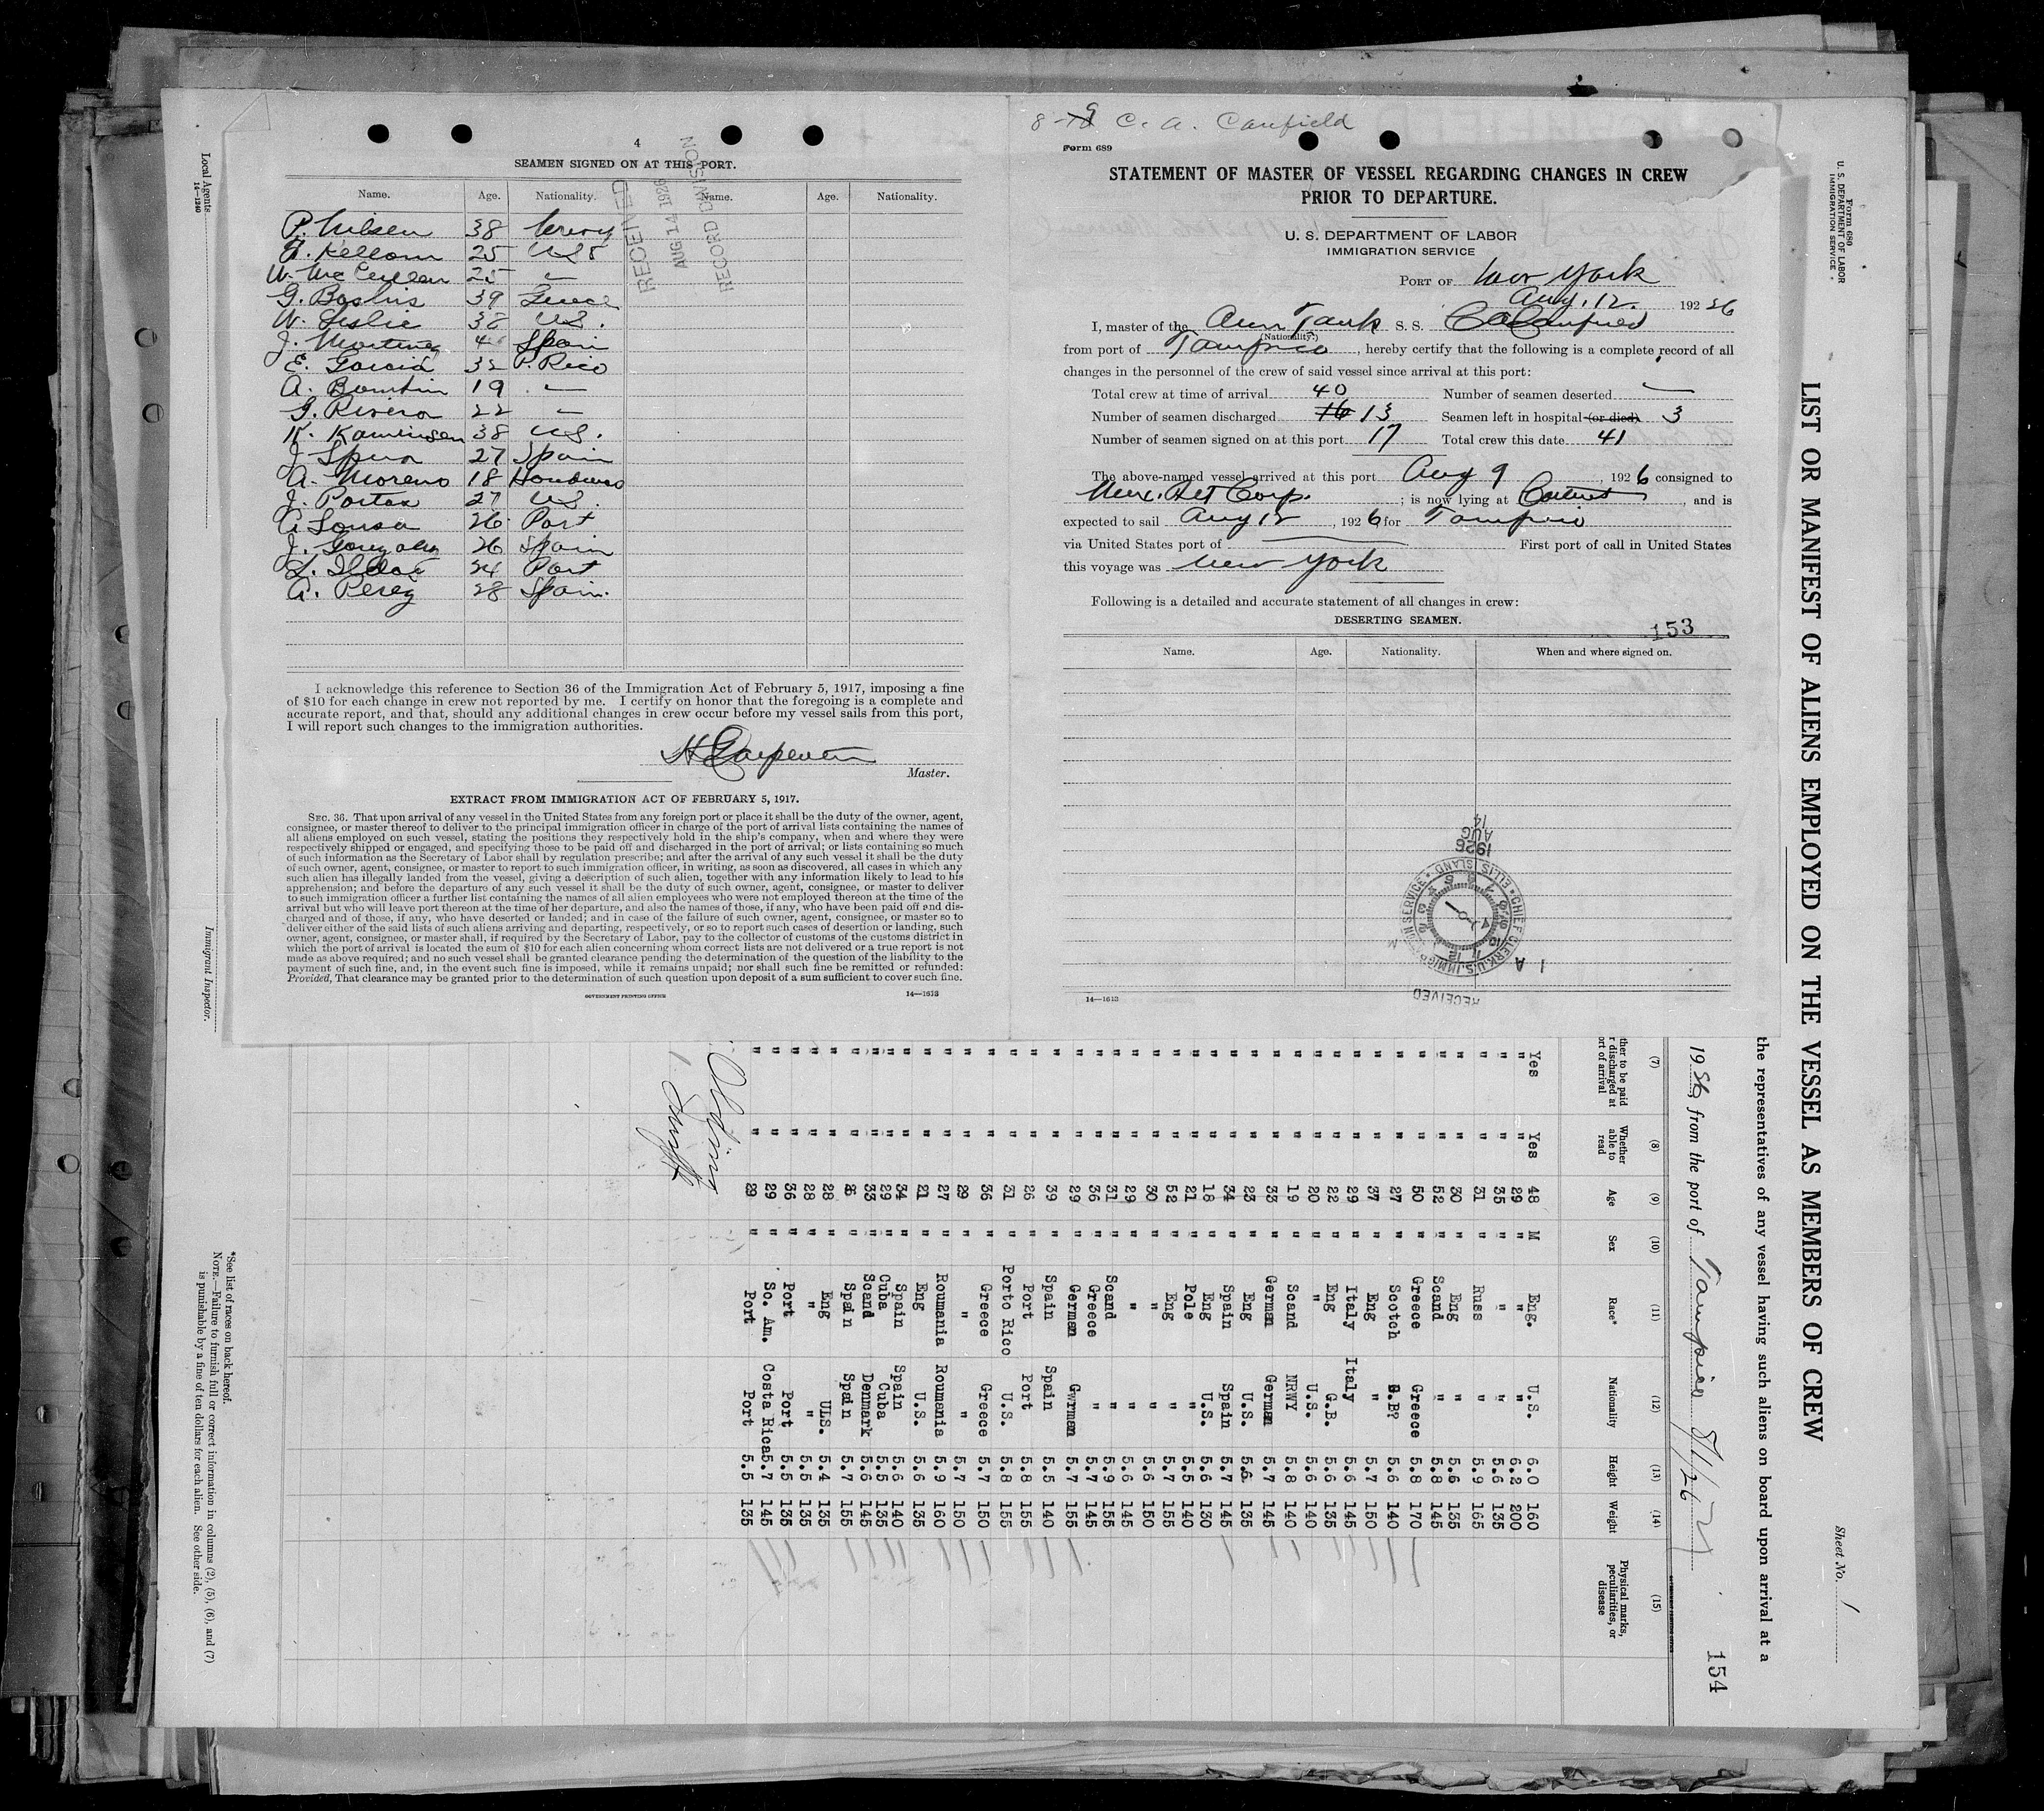 4
SEAMEN SIGNED ON AT THIS PORT.
Name. Age. Nationality. Name. Age. Nationality.
P. Nilsen 38
Kellom 25 US
W. 25 "
G. 39 Greece
W. Leslie 38 US.
J. Martinez Spain
E. Garcia 32 P. Rico
A. 19 "
G. Rivera 22 "
K. 38 US.
J. 27 Spain
A. Moreno 18 Honduras
J. 27 US.
26 Port
J. Gonzalez 26 Spain
24 Port
A. Perez 28 Spain.
RECEIVED
AUG 14 1926
RECORD DIVISION
I acknowledge this reference to Section 36 of the Immigration Act of February 5, 1917, imposing a fine
of $10 for each change in crew not reported by me. I certify on honor that the foregoing is a complete and
accurate report, and that, should any additional changes in crew occur before my vessel sails from this port,
I will report such changes to the immigration authorities.
Carpenter
Master.
EXTRACT FROM IMMIGRATION ACT OF FEBRUARY 5, 1917.
SEC. 36. That upon arrival of any vessel in the United States from any foreign port or place it shall be the duty of the owner, agent,
consignee, or master thereof to deliver to the principal immigration officer in charge of the port of arrival lists containing the names of
all aliens employed on such vessel, stating the positions they respectively hold in the ship's company, when and where they were
respectively shipped or engaged, and specifying those to be paid off and discharged in the port of arrival; or lists containing so much
of such information as the Secretary of Labor shall by regulation prescribe; and after the arrival of any such vessel it shall be the duty
of such owner, agent, consignee, or master to report to such immigration officer, in writing, as soon as discovered, all cases in which any
such alien has illegally landed from the vessel, giving a description of such alien, together with any information likely to lead to his
apprehension; and before the departure of any such vessel it shall be the duty of such owner, agent, consignee, or master to deliver
to such immigration officer a further list containing the names of all alien employees who were not employed thereon at the time of the
arrival but who will leave port thereon at the time of her departure, and also the names of those, if any, who have been paid off and dis-
charged and of those, if any, who have deserted or landed; and in case of the failure of such owner, agent, consignee, or master so to
deliver either of the said lists of such aliens arriving and departing, respectively, or so to report such cases of desertion or landing, such
owner, agent, consignee, or master shall, if required by the Secretary of Labor, pay to the collector of customs of the customs district in
which the port of arrival is located the sum of $10 for each alien concerning whom correct lists are not delivered or a true report is not
made as above required; and no such vessel shall be granted clearance pending the determination of the question of the liability to the
payment of such fine, and, in the event such fine is imposed, while it remains unpaid; nor shall such fine be remitted or refunded:
Provided, That clearance may be granted prior to the determination of such question upon deposit of a sum sufficient to cover such fine.
GOVERNMENT PRINTING OFFICE 14—1613
C. A. Canfield
Form 689
STATEMENT OF MASTER OF VESSEL REGARDING CHANGES IN CREW
PRIOR TO DEPARTURE.
U. S. DEPARTMENT OF LABOR
IMMIGRATION SERVICE
PORT OF New York
Aug. 12. 192 26
I, master of the Am Tank S. S. C A Canfield
(Nationality.)
from port of Tampico, hereby certify that the following is a complete record of all
changes in the personnel of the crew of said vessel since arrival at this port:
Total crew at time of arrival 40 Number of seamen deserted —
Number of seamen discharged 16 13 Seamen left in hospital (or died) 3
Number of seamen signed on at this port 17 Total crew this date 41
The above-named vessel arrived at this port Aug 9, 192 6 consigned to
Mex. Pet Corp.; is now lying at Carteret, and is
expected to sail Aug 12, 192 6 for Tampico
via United States port of First port of call in United States
this voyage was New York
Following is a detailed and accurate statement of all changes in crew:
DESERTING SEAMEN.
153
Name. Age. Nationality. When and where signed on.
RECEIVED
CHIEF CLERK, U.S. IMMIGRATION SERVICE • ELLIS ISLAND
1926 AUG 14
14—1613
Form 680
U. S. DEPARTMENT OF LABOR
IMMIGRATION SERVICE
Sheet No. 1
LIST OR MANIFEST OF ALIENS EMPLOYED ON THE VESSEL AS MEMBERS OF CREW
the representatives of any vessel having such aliens on board upon arrival at a
1926, from the port of Tampico 8/1/26
154
(7) (8) (9) (10) (11) (12) (13) (14) (15)
ther to be paid
r discharged at
ort of arrival
Whether able to read
Age
Sex
Race*
Nationality
Height
Weight
Physical marks, peculiarities, or disease
Yes Yes 48 M Eng. U.S. 6.0 160
" " 29 " " " 6.2 200
" " 35 " " " 5.6 135
" " 31 " Russ " 5.9 165
" " 30 " Eng " 5.6 135
" " 52 " Scand " 5.8 145
" " 50 " Greece Greece 5.8 170
" " 27 " Scotch G.B? 5.6 140
" " 37 " Eng " 5.7 150
" " 29 " Italy Italy 5.6 145
" " 22 " Eng G.B. 5.6 135
" " 20 " " U.S. 5.6 140
" " 19 " Scand NRWY 5.8 140
" " 33 " German German 5.7 145
" " 23 " Eng U.S. 5.6 135
" " 34 " Spain Spain 5.7 145
" " 18 " Eng U.S. 5.6 130
" " 21 " Pole " 5.5 140
" " 52 " Eng " 5.7 155
" " 30 " " " 5.6 150
" " 29 " " " 5.6 145
" " 31 " Scand " 5.9 155
" " 36 " Greece " 5.7 145
" " 29 " German Gwrman 5.7 155
" " 39 " Spain Spain 5.5 140
" " 26 " Port Port 5.8 155
" " 31 " Porto Rico U.S. 5.8 155
" " 36 " Greece Greece 5.7 150
" " 29 " " " 5.7 150
" " 27 " Roumania Roumania 5.9 160
" " 21 " Eng U.S. 5.6 135
" " 34 " Spain Spain 5.6 140
" " 29 " Cuba Cuba 5.5 135
" " 33 " Scand Denmark 5.6 145
" " 26 " Spain Spain 5.7 155
" " 28 " Eng ULS. 5.4 135
" " 28 " " " 5.5 135
" " 36 " Port Port 5.5 135
" " 29 " So. Am. Costa Rica 5.7 145
" " 29 " Port Port 5.5 135
Local Agents
14—1240
Immigrant Inspector.
*See list of races on back hereof.
NOTE.—Failure to furnish full or correct information in columns (2), (5), (6), and (7)
is punishable by a fine of ten dollars for each alien. See other side.